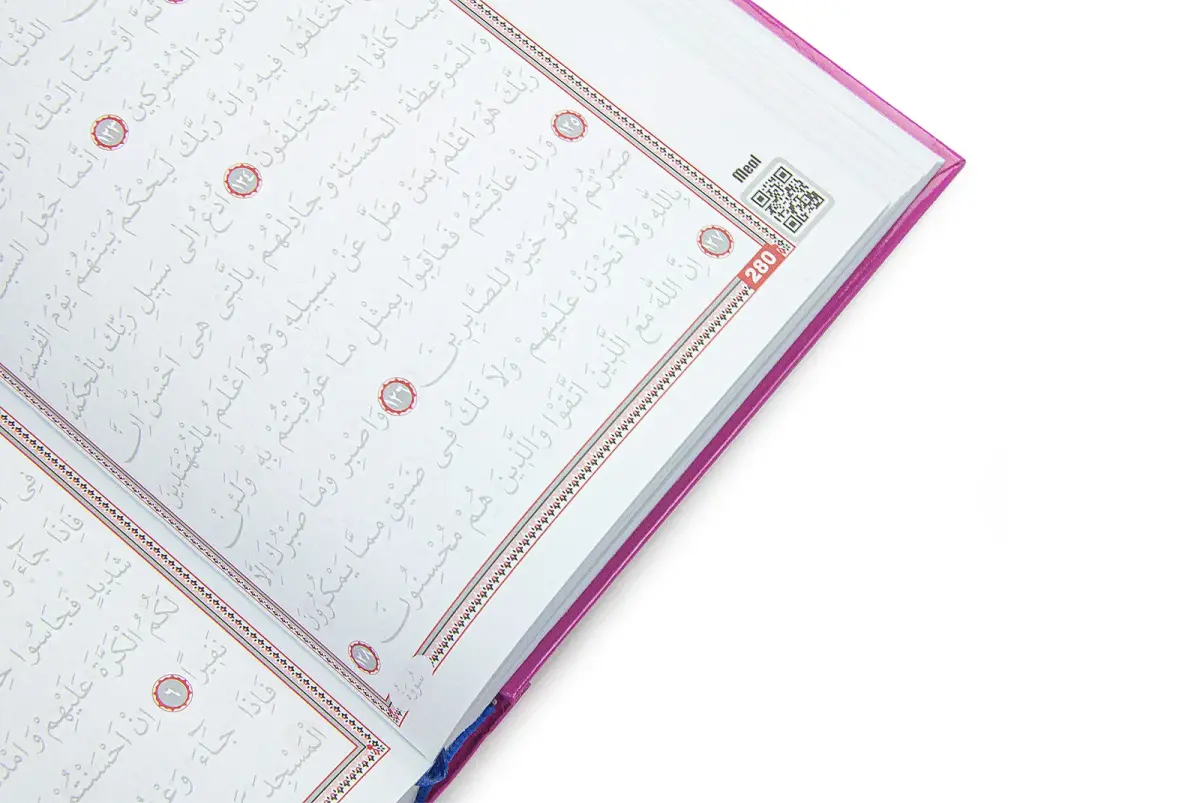 الدُّنْيَا
ثُمَّ اَوْحَيْنَٓا اِلَيْكَ اَنِ
كَانَ مِنَ الْمُشْرِكِينَ ١٢٣ اِنَّمَا جُعِلَ
اخْتَلَفُوا فِيهِ وَاِنَّ رَبَّكَ لَيَحْكُمُ بَيْنَهُمْ يَوْمَ الْقِيٰمَةِ
فِيمَا كَانُوا فِيهِ يَخْتَلِفُونَ ١٢٤ اُدْعُ اِلٰى سَبِيلِ رَبِّكَ بِالْحِكْمَةِ
وَالْمَوْعِظَةِ الْحَسَنَةِ وَجَادِلْهُمْ بِالَّتِى هِىَ اَحْسَنُ اِنَّ
رَبَّكَ هُوَ اَعْلَمُ بِمَنْ ضَلَّ عَنْ سَبِيلِهِ وَهُوَ اَعْلَمُ بِالْمُهْتَدِينَ
١٢٥ وَاِنْ عَاقَبْتُمْ فَعَاقِبُوا بِمِثْلِ مَا عُوقِبْتُمْ بِهِ وَلَئِنْ
صَبَرْتُمْ لَهُوَ خَيْرٌ لِلصَّابِرِينَ ١٢٦ وَاصْبِرْ وَمَا صَبْرُكَ اِلَّا
بِاللّٰهِ وَلَا تَحْزَنْ عَلَيْهِمْ وَلَا تَكُ فِى ضَيْقٍ مِمَّا يَمْكُرُونَ
١٢٧ اِنَّ اللّٰهَ مَعَ الَّذِينَ اتَّقَوْا وَالَّذِينَ هُمْ مُحْسِنُونَ ١٢٨
Meal
280
سُورَةُ
فِى
فَاِذَا جَٓاءَ
شَدِيدٍ فَجَاسُوا
لَكُمُ الْكَرَّةَ عَلَيْهِمْ
نَفِيرًا ٦ اِنْ اَحْسَنْتُمْ
فَاِذَا جَٓاءَ وَعْدُ
الْمَسْجِدَ